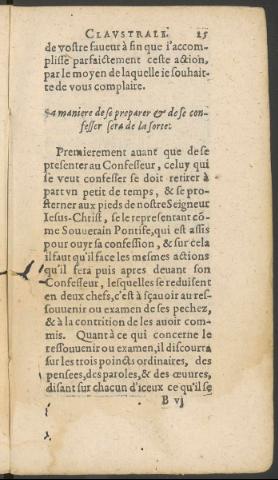 CLAVSTRALE. 25
de vostre faueur à fin que i'accom-
plisse parfaictement ceste action,
par le moyen de laquelle ie souhait-
te de vous complaire.
La maniere de se preparer & de se con-
fesser sera de la sorte.
Premierement auant que de se
presenter au Confesseur, celuy qui
se veut confesser se doit retirer à
part vn petit de temps, & se pro-
sterner aux pieds de nostre Seigneur
Iesus-Christ, se le representant cõ-
me Souuerain Pontife, qui est assis
pour ouyr sa confession, & sur cela
il faut qu'il face les mesmes actions
qu'il fera puis apres deuant son
Confesseur, lesquelles se reduisent
en deux chefs, c'est à sçauoir au res-
souuenir ou examen de ses pechez,
& à la contrition de les auoir com-
mis. Quant à ce qui concerne le
ressouuenir ou examen, il discourra
sur les trois poincts ordinaires, des
pensees, des paroles, & des œuures,
disant sur chacun d'iceux ce qu'il se
B vj